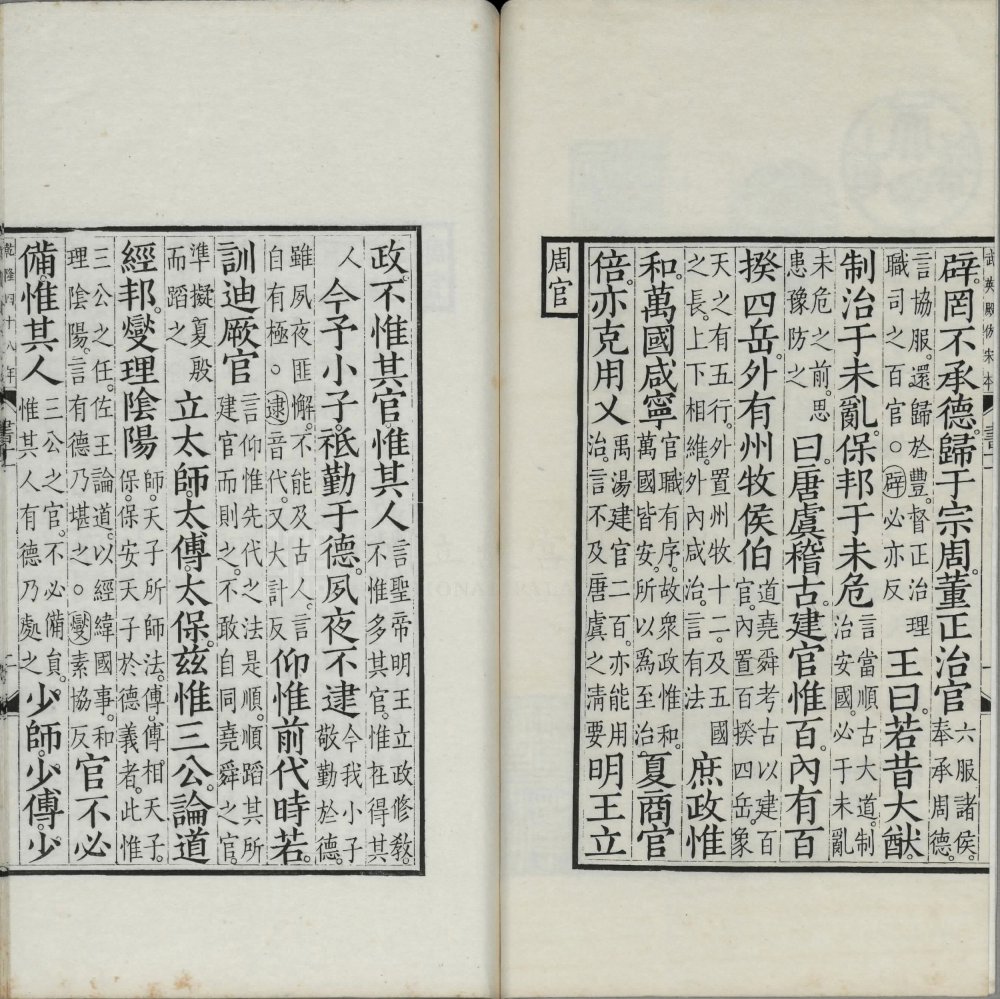 武英殿仿宋本
書十一
辟。罔不承德。歸于宗周。董正治官六服諸侯。奉承周德。
言協服。還歸於豐。督正治理職司之百官○辟必亦反王曰。若昔大猷。
制治于未亂。保邦于未危言當順古大道。制治安國。必于未亂
未危之前。思患豫防之曰。唐虞稽古。建官惟百。內有百
揆四岳。外有州牧侯伯道堯舜考古以建百官。內置百揆四岳。象
天之有五行。外置州牧十二。及五國之長。上下相維。外內咸治。言有法庶政惟
和。萬國咸寧官職有序。故衆政惟和。萬國皆安。所以爲至治。夏商官
倍。亦克用乂禹湯建官二百。亦能用治。言不及唐虞之淸要明王立
周官
政。不惟其官。惟其人言聖帝明王立政修教。不惟多其官。惟在得其
人今予小子。祗勤于德。夙夜不逮今我小子敬勤於德。
雖夙夜匪懈。不能及古人。言自有極○逮音代。又大計反仰惟前代時若。
訓迪厥官言仰惟先代之法是順。順蹈其所建官而則之。不敢自同堯舜之官。
準擬夏殷而蹈之立太師。太傅。太保。兹惟三公。論道
經邦。燮理陰陽師。天子所師法。傅。傅相天子。保。保安天子於德義者。此惟
三公之任。佐王論道。以經緯國事。和理陰陽。言有德乃堪之○燮素協反官不必
備。惟其人三公之官。不必備員。惟其人有德乃處之少師。少傅。少
乾隆四十八年
書十